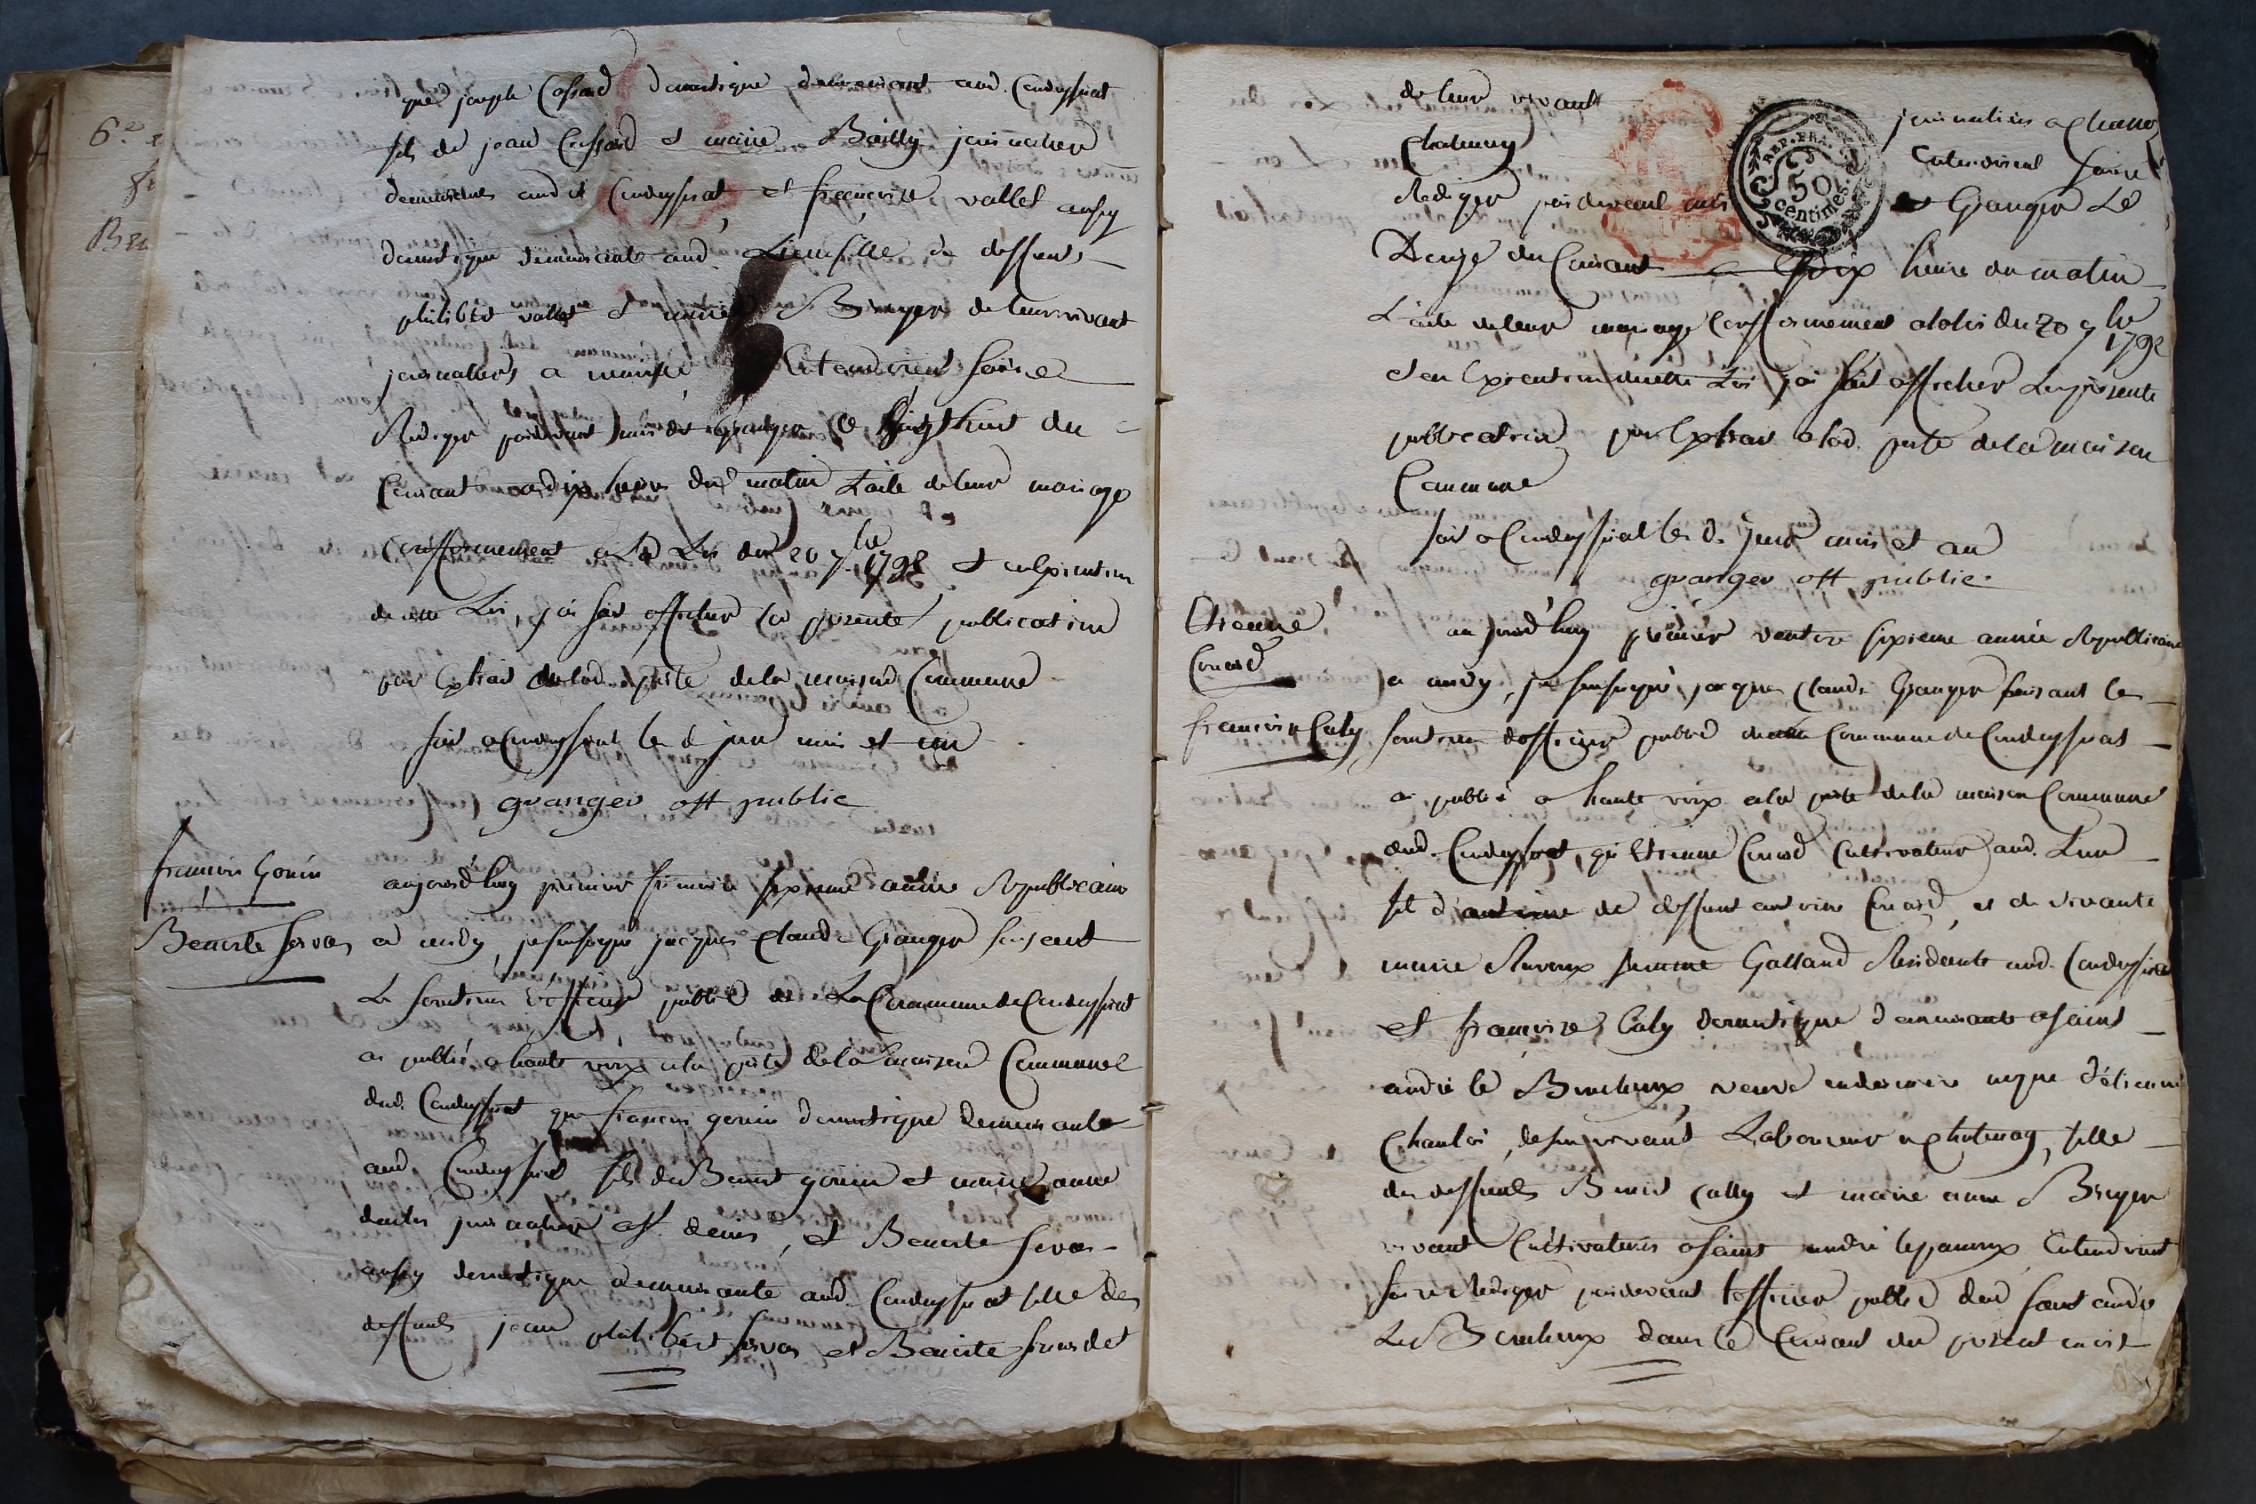 que joseph Cossard domestique demeurant aud. Condeyssiat
fils de jean Cossard et marie Bailly journalier
demeurants audit Condeyssiat, et françoise vallet aussy
domestique demeurante aud. Lieu fille de deffunts
philibert vallet et marie Broyer de leur vivant
journaliers a Entendvient faire
Rediger pardevant mois dit granger le vingt huit du
Courant a dix heure du matin Lacte de leur mariage
Confformement a La Loi du 20 7bre 1792 et en Execution
de cette Loi, j'ai fait afficher la presente publication
par Extrait alad. porte de la maison Commune
fait a Condeyssiat les d. jour mois et an
granger off public
françois Gonin
Benoite servas
aujourd'huy premier frimaire sixieme année Republicaine
a midy, je soussigné jacques claude Granger faisant
Le fonction d'officier public de La Commune de Condeyssiat
ai publié a haute voix a la porte de la maison Commune
dud. Condeyssiat que françois gonin domestique demeurante
aud. Condeyssiat fils de Benoit gonin et marie anne
journalier a St. denis, et Benoite servas
aussy domestique demeurante aud. Condeyssiat fille des
deffunts jean philibert servas et Benoite
de leur vivant journaliers a
Chatenay Entendvient faire
Rediger pardevant mois REP. FRA. 50 centimes Granger Le
Douze du Courant a dix heure du matin
L'acte de leur mariage Confformement a la loi du 20 7bre 1792
et en Execution de cette Loi j'ai fait afficher La presente
publication par Extrait a lad. porte de la maison
Commune
fait a Condeyssiat les d. jour mois et an
granger off public.
Etienne
Conard
françoise Caly
aujourd'huy premier ventose sixieme année Republicaine
a midy, je soussigné jacques claude Granger faisant les
fonction d'officier public de la Commune de Condeyssiat
ai publié a haute voix a la porte de la maison Commune
dud. Condeyssiat, que Etienne Conard Cultivateur aud. Lieu
fils d'antoine de deffunt antoine Conard, et de vivante
marie Ravoux femme Galland Residente aud. Condeyssiat
et françoise Caly domestique demeurante a saint
andré le Bouchoux, veuve en derniere noces d'étienne
de son vivant Laboureur a Chatenay, fille
des deffunts Benoit Cally et marie anne Broyer
vivant Cultivateurs a saint andré le panoux Entendvient
faire Rediger pardevant l'officier public dud saint andré
Le Bouchoux dans le Courant du present mois